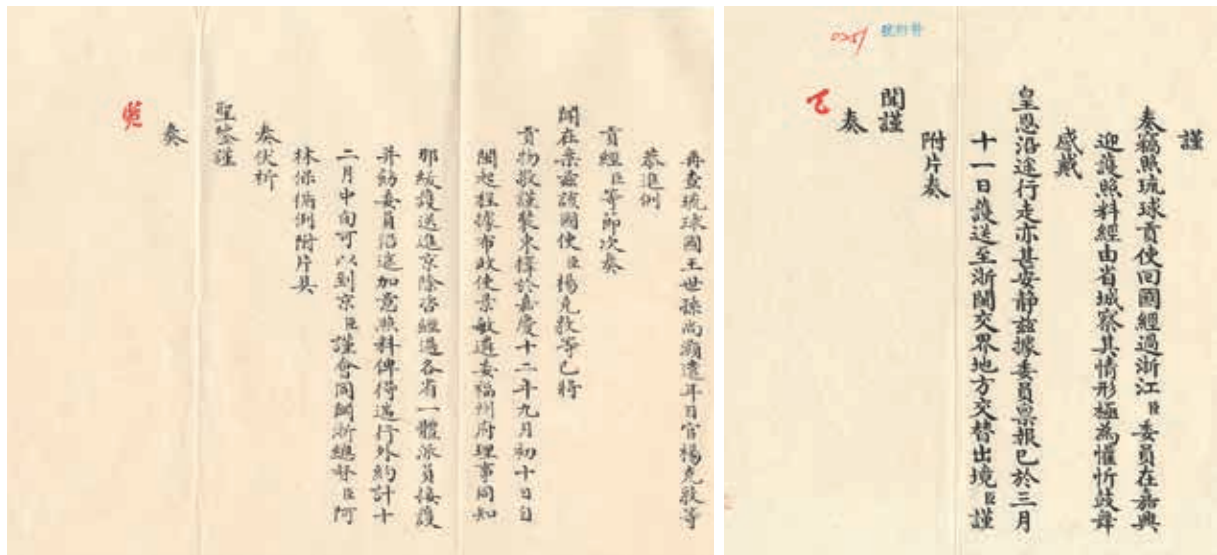 再查琉球國王世孫尚灝遣年目官楊克敦等
恭進例
貢經臣等節次奏
聞在案茲該國使臣楊克敦等已將
貢物敬謹裝束擇於嘉慶十二年九月初十日自
閩起程據布政使景敏遴委福州府理事同知
那綬護送進京除咨經過各省一體派員接護
并飭委員沿途加意照料俾得遄行外約計十
二月中旬可以到京臣謹會同閩浙總督臣阿
林保循例附片具
奏伏祈
聖鑒謹
奏
覽
謹
奏竊照琉球貢使回國經過浙江臣委員在嘉興
迎護照料經由省城察其情形極為懽忻鼓舞
感戴
皇恩沿途行走亦甚安靜茲據委員稟報已於三月
十一日護送至浙閩交界地方交替出境臣謹
附片奏
聞謹
奏